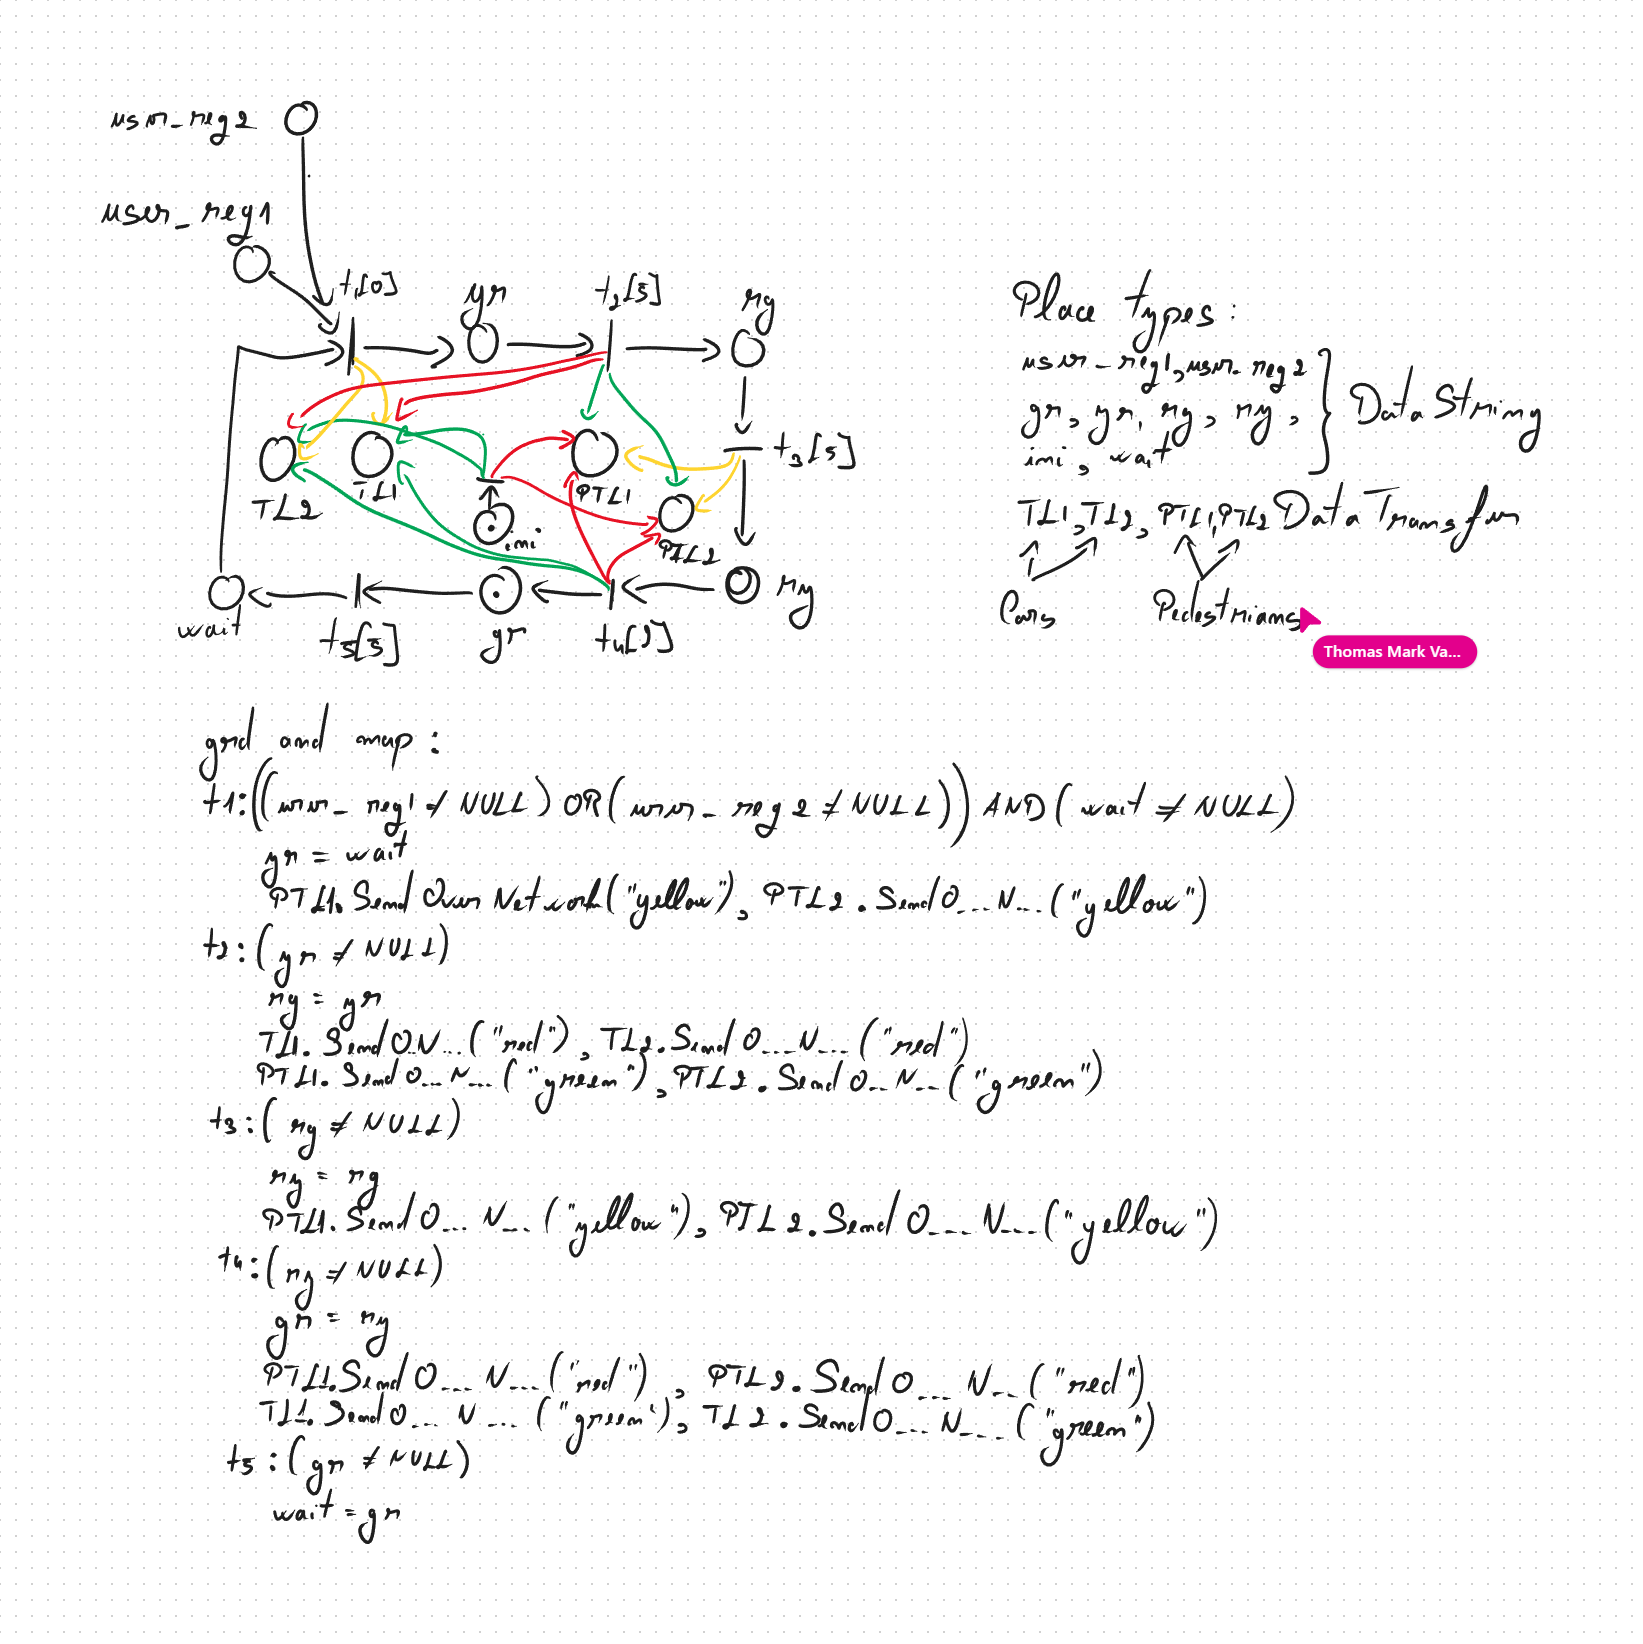 usr_reg2
user_reg1
t1[0]
yr
t2[5]
rg
t3[5]
TL2
TL1
PTL1
PTL2
ini
wait
t5[5]
gr
t4[5]
ry
Place types:
usr_reg1, usr_reg2
gr, yr, rg, ry,
ini, wait
} DataString
TL1, TL2, PTL1, PTL2 DataTransfer
Cars
Pedestrians
Thomas Mark Va...
grd and map :
t1: ((usr_reg1 ≠ NULL) OR (usr_reg2 ≠ NULL)) AND (wait ≠ NULL)
yr = wait
PTL1.SendOverNetwork("yellow"), PTL2.SendO...N...("yellow")
t2: (yr ≠ NULL)
rg = yr
TL1.SendO.N...("red"), TL2.SendO...N...("red")
PTL1.SendO...N...("green"), PTL2.SendO...N...("green")
t3: (rg ≠ NULL)
ry = rg
PTL1.SendO...N...("yellow"), PTL2.SendO...N...("yellow")
t4: (ry ≠ NULL)
gr = ry
PTL1.SendO...N...("red"), PTL2.SendO...N...("red")
TL1.SendO...N...("green"), TL2.SendO...N...("green")
t5: (gr ≠ NULL)
wait = gr